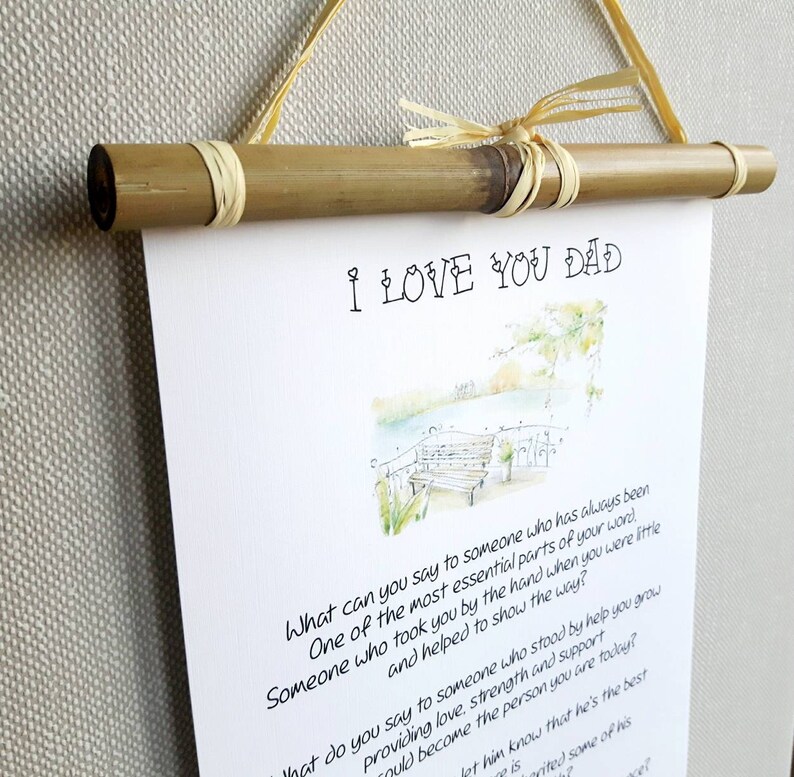 I LOVE YOU DAD
What can you say to someone who has always been
One of the most essential parts of your word,
Someone who took you by the hand when you were little
and helped to show the way?
What do you say to someone who stood by help you grow
providing love, strength and support
could become the person you are today?
let him know that he's the best
re is
herited some of his